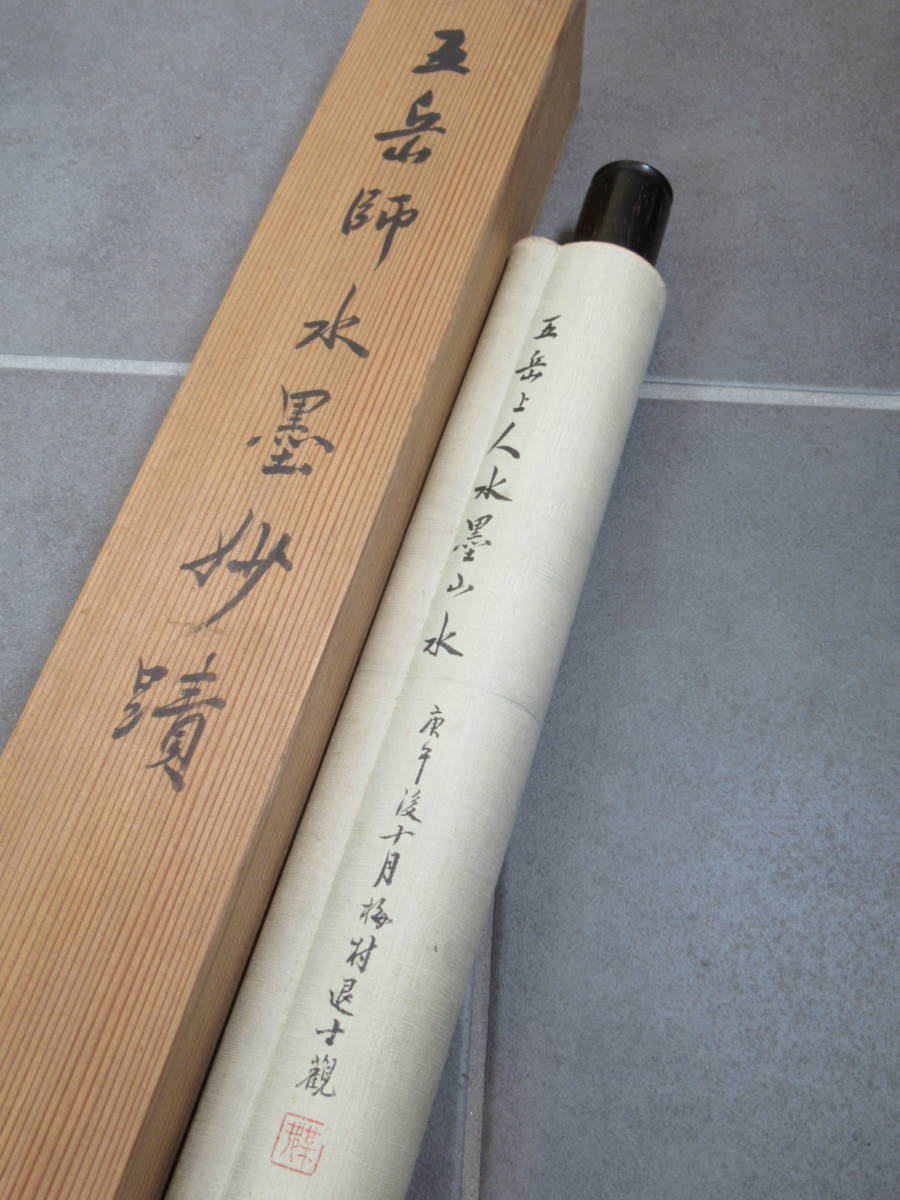 五岳師水墨妙蹟
五岳上人水墨山水
庚午後十月梅村退士観